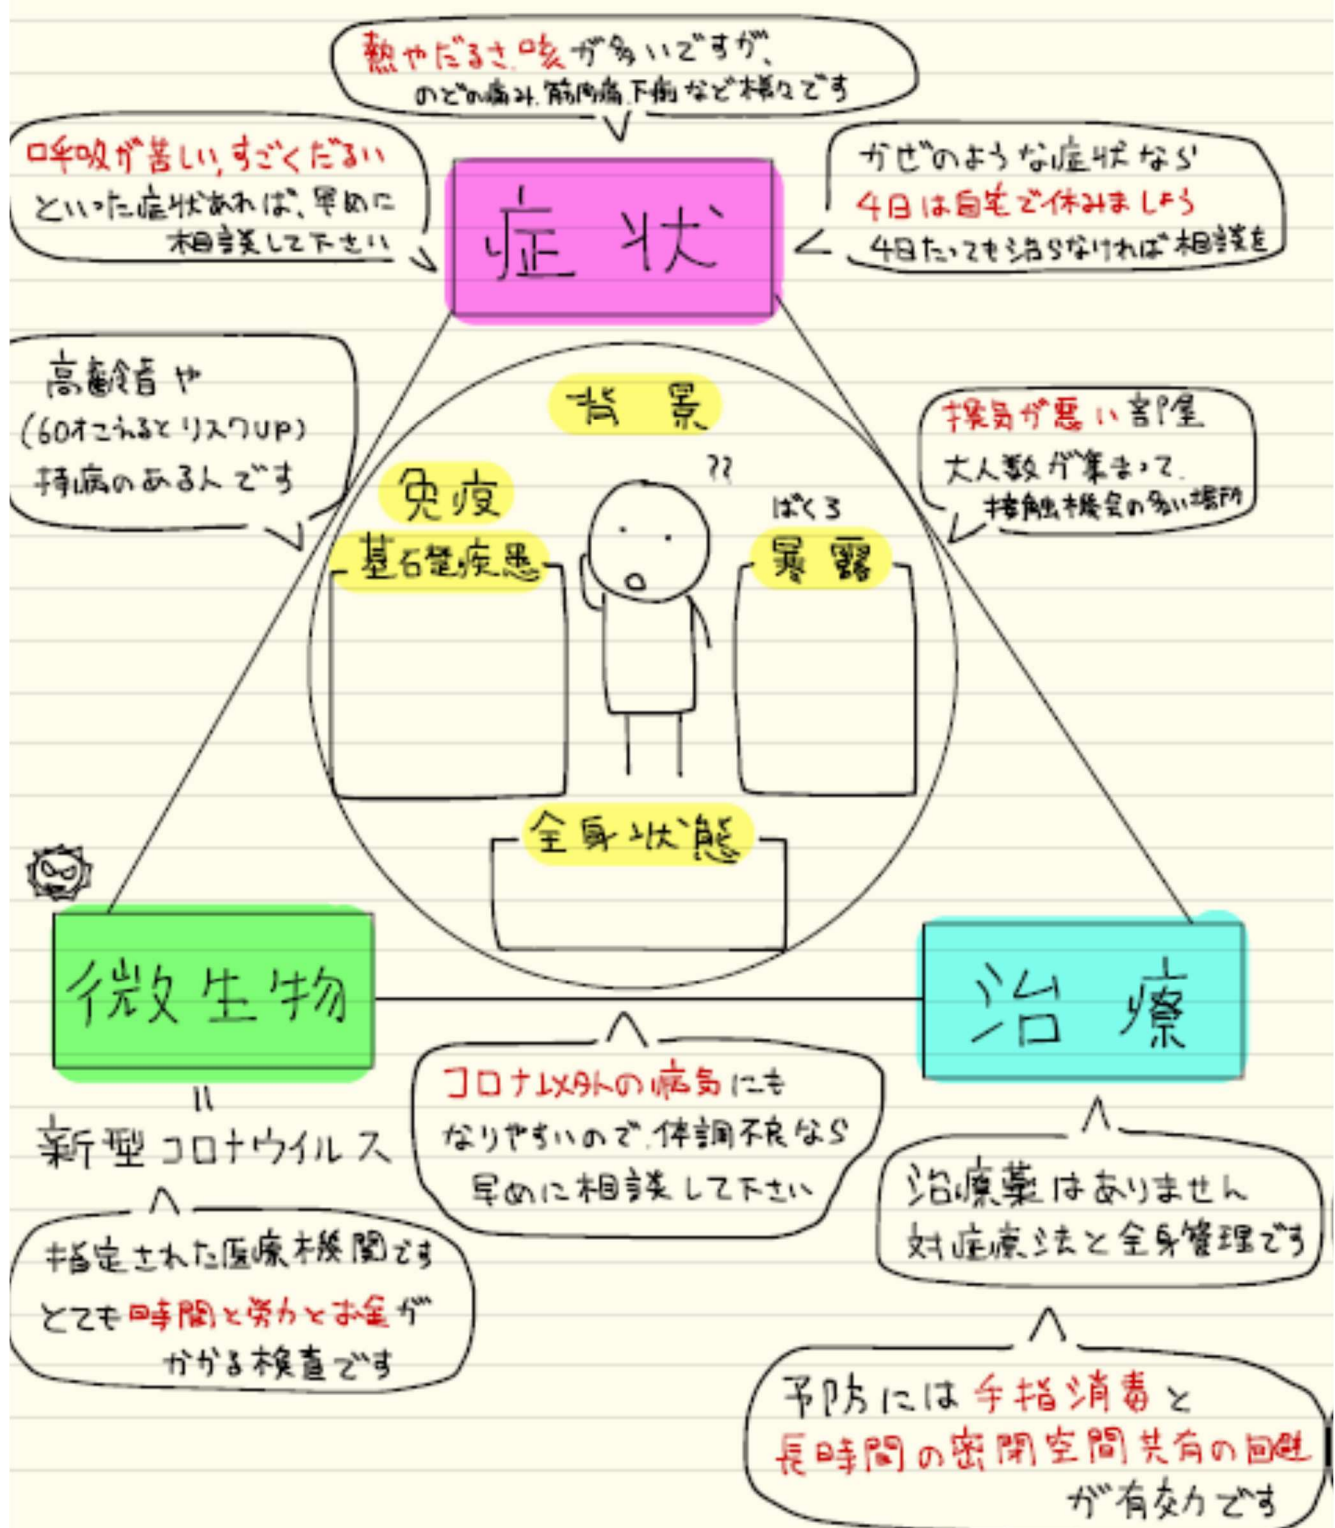 熱やだるさ、咳が多いですが、
のどの痛み、筋肉痛、下痢など様々です
呼吸が苦しい、すごくだるい
といった症状あれば、早めに
相談して下さい
症状
かぜのような症状なら
4日は自宅で休みましょう
4日たっても治らなければ相談を
高齢者や
(60才こえるとリスクUP)
持病のある人です
背景
??
免疫
基礎疾患
ばくろ
暴露
換気が悪い部屋
大人数が集まって、
接触機会の多い場所
全身状態
微生物
治療
=
新型コロナウイルス
コロナ以外の病気にも
なりやすいので、体調不良なら
早めに相談して下さい
治療薬はありません
対症療法と全身管理です
指定された医療機関です
とても時間と労力とお金が
かかる検査です
予防には手指消毒と
長時間の密閉空間共有の回避
が有効です